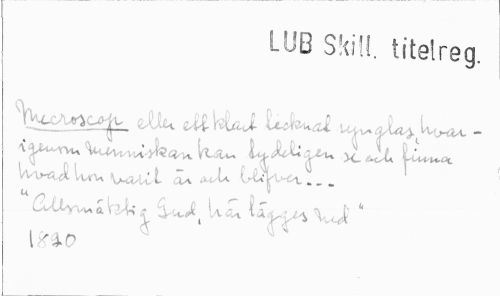 LUB Skill. titelreg.
Mecroscop eller ett klart tecknat synglas, hvar-
igenom menniskan kan tydeligen se och finna
hvad hon varit är och blifver---
"Allsmäktig Gud, här lägges ned"
1820